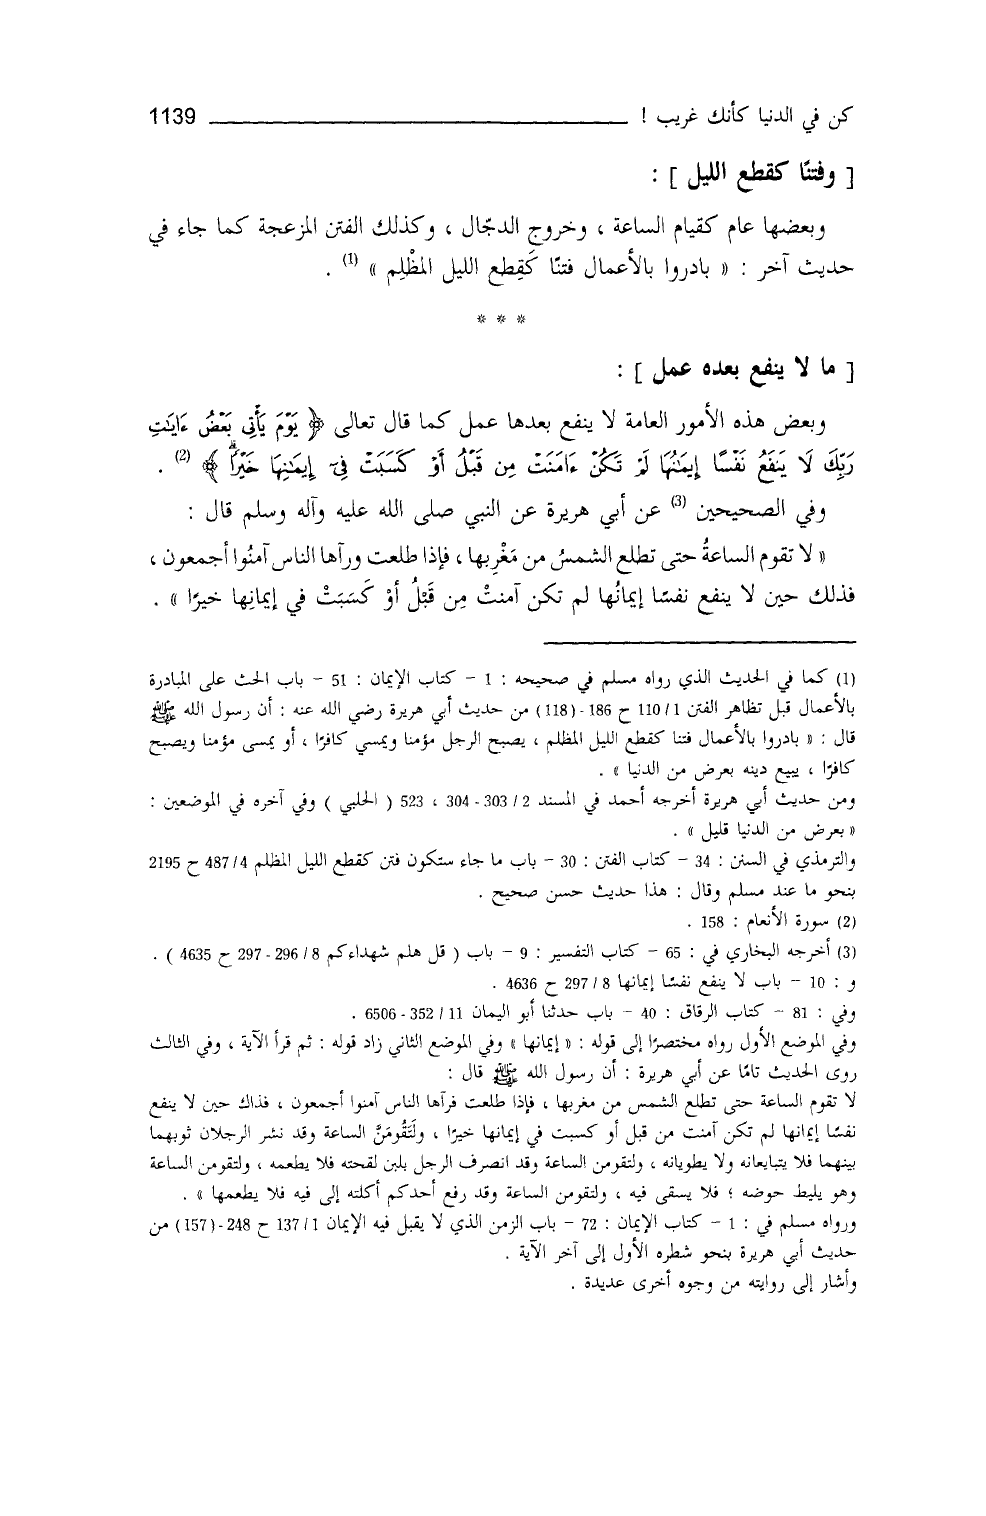 كن في الدنيا كأنك غريب ! 1139
[ وفتنًا كقطع الليل ] :
وبعضها عام كقيام الساعة ، وخروج الدجّال ، وكذلك الفتن المزعجة كما جاء في
حديث آخر : « بادروا بالأعمال فتنًا كَقِطع الليل المظْلِم » (1) .
* * *
[ ما لا ينفع بعده عمل ] :
وبعض هذه الأمور العامة لا ينفع بعدها عمل كما قال تعالى ﴿ يَوْمَ يَأْتِى بَعْضُ ءَايَٰتِ
رَبِّكَ لَا يَنفَعُ نَفْسًا إِيمَٰنُهَا لَمْ تَكُنْ ءَامَنَتْ مِن قَبْلُ أَوْ كَسَبَتْ فِىٓ إِيمَٰنِهَا خَيْرًاۗ ﴾ (2) .
وفي الصحيحين (3) عن أبي هريرة عن النبي صلى الله عليه وآله وسلم قال :
« لا تقوم الساعةُ حتى تطلع الشمسُ من مَغْرِبها ، فإذا طلعت ورآها الناس آمنُوا أجمعون ،
فذلك حين لا ينفع نفسًا إيمانُها لم تكن آمنتْ مِن قَبْلُ أوْ كَسَبَتْ في إيمانِها خيرًا » .
(1) كما في الحديث الذي رواه مسلم في صحيحه : 1 - كتاب الإيمان : 51 - باب الحث على المبادرة
بالأعمال قبل تظاهر الفتن 1/ 110 ح 186 - (118) من حديث أبي هريرة رضي الله عنه : أن رسول الله ﷺ
قال : « بادروا بالأعمال فتنا كقطع الليل المظلم ، يصبح الرجل مؤمنا ويمسي كافرًا ، أو يمسى مؤمنا ويصبح
كافرًا ، يبيع دينه بعرض من الدنيا » .
ومن حديث أبي هريرة أخرجه أحمد في المسند 2 / 303 - 304 ، 523 ( الحلبي ) وفي آخره في الموضعين :
« بعرض من الدنيا قليل » .
والترمذي في السنن : 34 - كتاب الفتن : 30 - باب ما جاء ستكون فتن كقطع الليل المظلم 4/ 487 ح 2195
بنحو ما عند مسلم وقال : هذا حديث حسن صحيح .
(2) سورة الأنعام : 158 .
(3) أخرجه البخاري في : 65 - كتاب التفسير : 9 - باب ( قل هلم شهداءكم 8 / 296 - 297 ح 4635 ) .
و : 10 - باب لا ينفع نفسًا إيمانها 8 / 297 ح 4636 .
وفي : 81 - كتاب الرقاق : 40 - باب حدثنا أبو اليمان 11 / 352 - 6506 .
وفي الموضع الأول رواه مختصرًا إلى قوله : « إيمانها » وفي الموضع الثاني زاد قوله : ثم قرأ الآية ، وفي الثالث
روى الحديث تامًا عن أبي هريرة : أن رسول الله ﷺ قال :
لا تقوم الساعة حتى تطلع الشمس من مغربها ، فإذا طلعت فرآها الناس آمنوا أجمعون ، فذاك حين لا ينفع
نفسًا إيمانها لم تكن آمنت من قبل أو كسبت في إيمانها خيرًا ، ولَتَقُومَنَّ الساعة وقد نشر الرجلان ثوبهما
بينهما فلا يتبايعانه ولا يطويانه ، ولتقومن الساعة وقد انصرف الرجل بلبن لقحته فلا يطعمه ، ولتقومن الساعة
وهو يليط حوضه ؛ فلا يسقى فيه ، ولتقومن الساعة وقد رفع أحدكم أكلته إلى فيه فلا يطعمها » .
ورواه مسلم في : 1 - كتاب الإيمان : 72 - باب الزمن الذي لا يقبل فيه الإيمان 1/ 137 ح 248 - (157) من
حديث أبي هريرة بنحو شطره الأول إلى آخر الآية .
وأشار إلى روايته من وجوه أخرى عديدة .